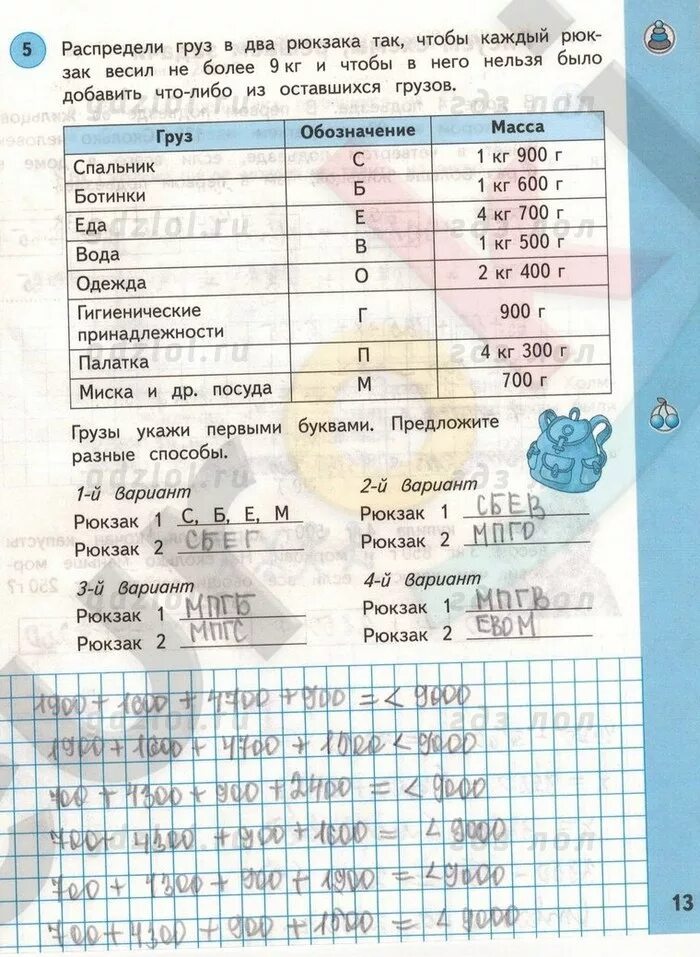 5 Распредели груз в два рюкзака так, чтобы каждый рюк-
зак весил не более 9 кг и чтобы в него нельзя было
добавить что-либо из оставшихся грузов.
Груз Обозначение Масса
Спальник С 1 кг 900 г
Ботинки Б 1 кг 600 г
Еда Е 4 кг 700 г
Вода В 1 кг 500 г
Одежда О 2 кг 400 г
Гигиенические
принадлежности Г 900 г
Палатка П 4 кг 300 г
Миска и др. посуда М 700 г
Грузы укажи первыми буквами. Предложите
разные способы.
1-й вариант
Рюкзак 1 С, Б, Е, М
Рюкзак 2 СБЕГ
2-й вариант
Рюкзак 1 СБЕВ
Рюкзак 2 МПГО
3-й вариант
Рюкзак 1 МПГБ
Рюкзак 2 МПГС
4-й вариант
Рюкзак 1 МПГВ
Рюкзак 2 ЕВОМ
1900 + 1600 + 4700 + 900 = < 9000
1900 + 1600 + 4700 + 1500 < 9000
700 + 4300 + 900 + 2400 = < 9000
700 + 4300 + 900 + 1600 = < 9000
700 + 4300 + 900 + 1900 = < 9000
700 + 4300 + 900 + 1500 = < 9000
13
gdzlol.ru